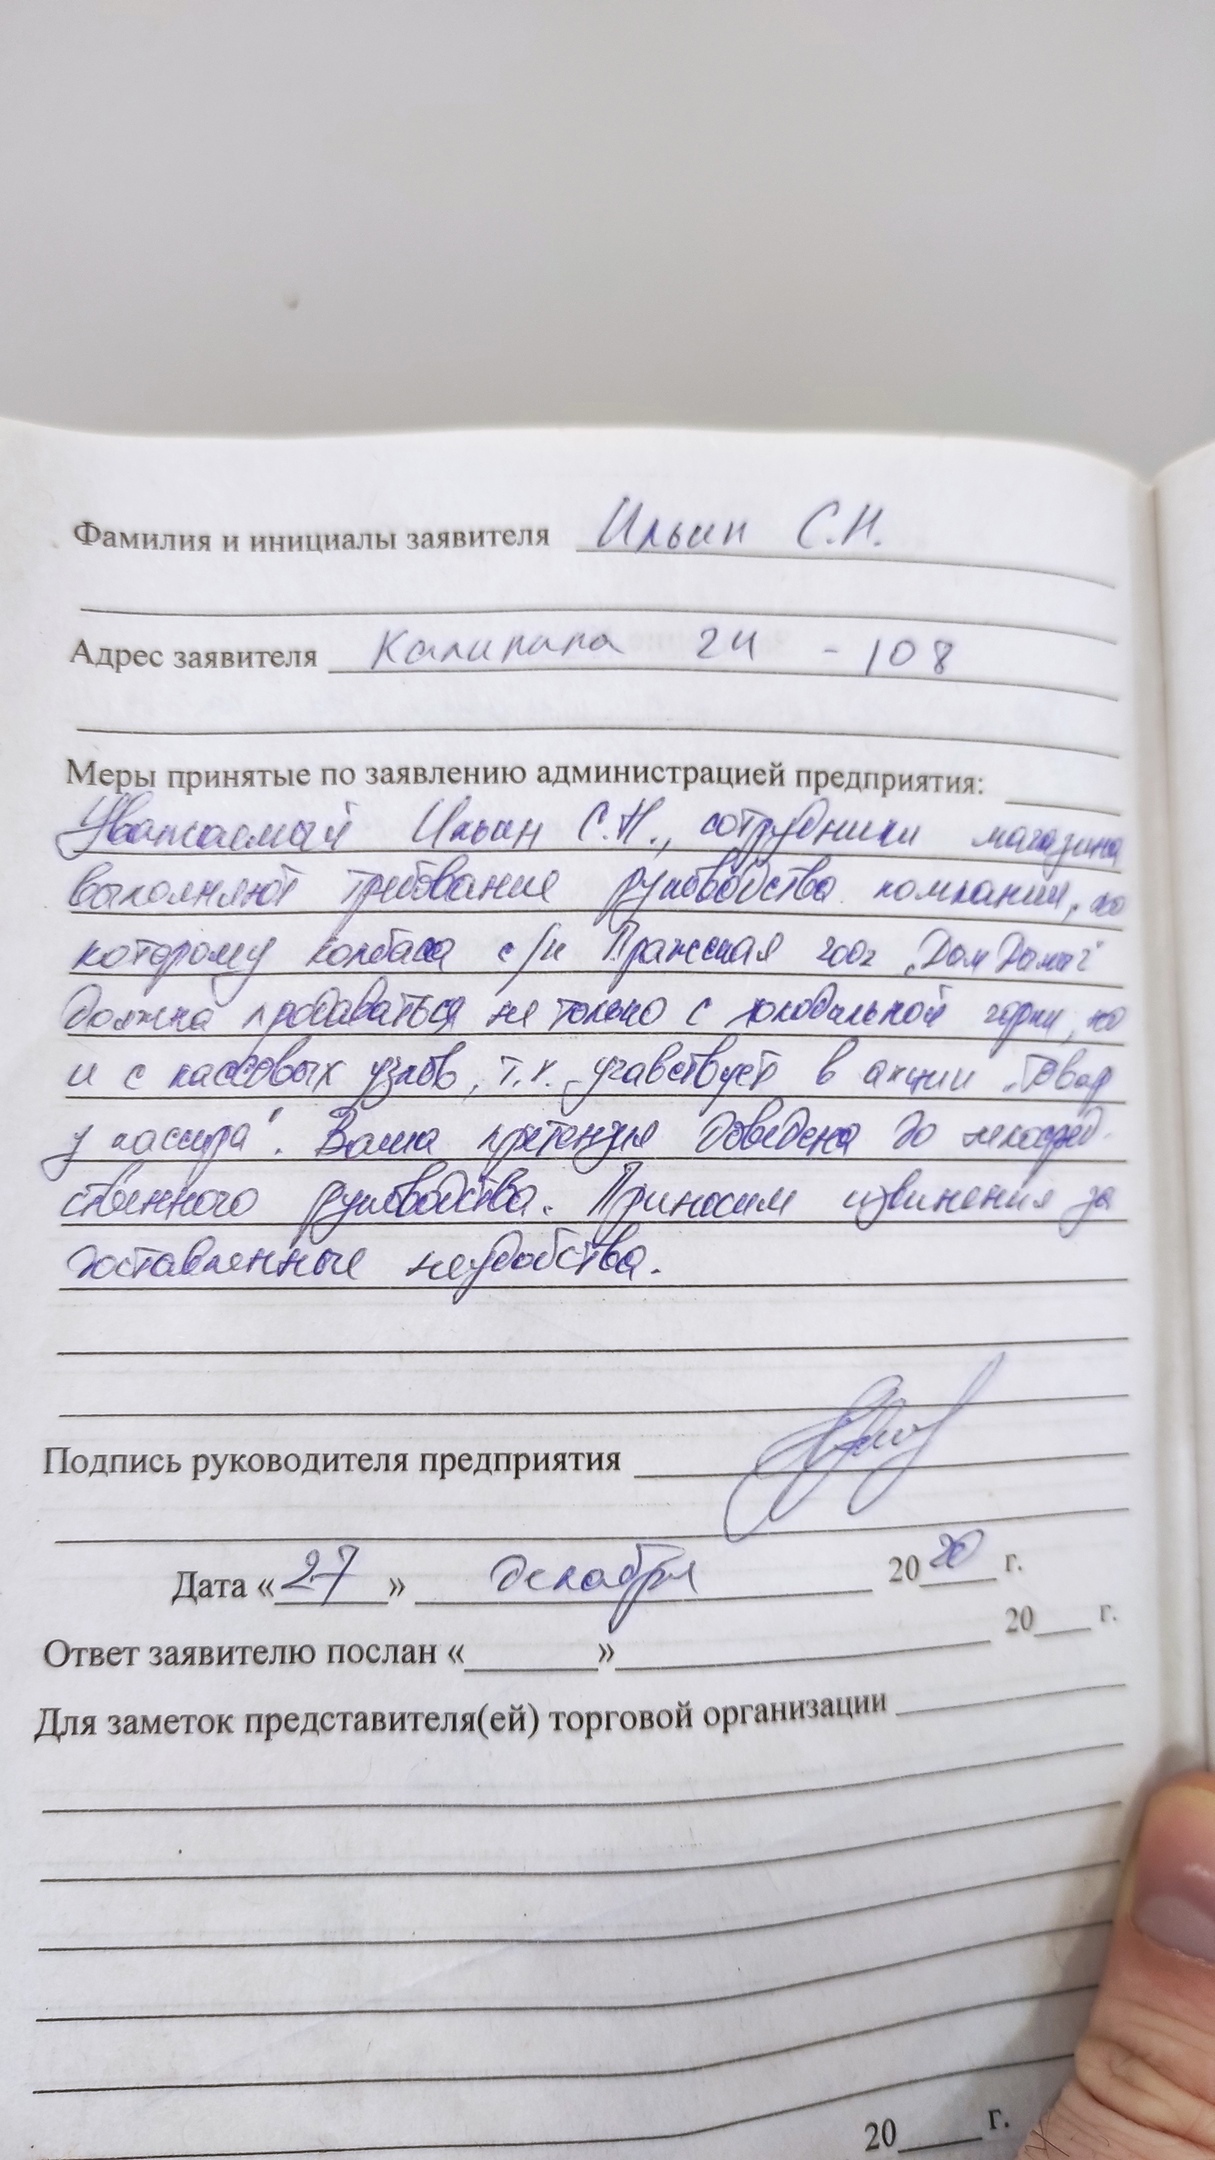 Фамилия и инициалы заявителя Ильин С.Н.
Адрес заявителя Калинина 24 - 108
Меры принятые по заявлению администрацией предприятия:
Уважаемый Ильин С.Н., сотрудники магазина
выполняют требование руководства компании, по
которому колбаса с/к Пражская 200г
должна продаваться не только с холодильной горки, но
и с кассовых узлов, т.к. учавствует в акции „Товар
у кассира". Ваша претензия доведена до непосред-
ственного руководства. Приносим извинения за
доставленные неудобства.
Подпись руководителя предприятия
Дата «27» декабря 2020 г.
Ответ заявителю послан «       » 20   г.
Для заметок представителя(ей) торговой организации
20   г.